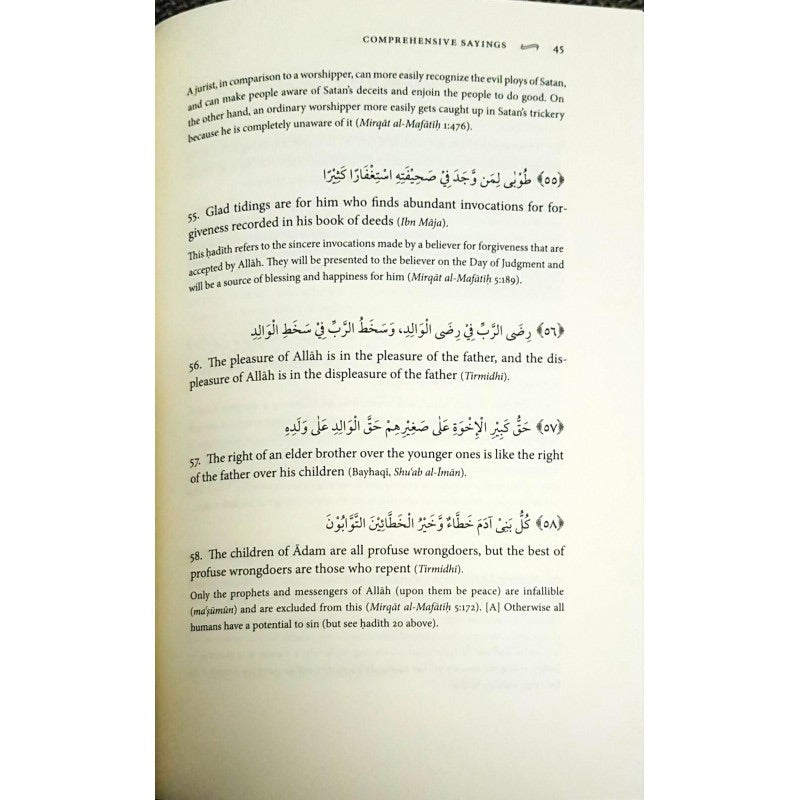 COMPREHENSIVE SAYINGS 45
A jurist, in comparison to a worshipper, can more easily recognize the evil ploys of Satan,
and can make people aware of Satan's deceits and enjoin the people to do good. On
the other hand, an ordinary worshipper more easily gets caught up in Satan's trickery
because he is completely unaware of it (Mirqāt al-Mafātīḥ 1:476).
﴿٥٥﴾ طُوْبٰى لِمَن وَّجَدَ فِيْ صَحِيْفَتِهِ اسْتِغْفَارًا كَثِيْرًا
55. Glad tidings are for him who finds abundant invocations for for-
giveness recorded in his book of deeds (Ibn Māja).
This ḥadīth refers to the sincere invocations made by a believer for forgiveness that are
accepted by Allāh. They will be presented to the believer on the Day of Judgment and
will be a source of blessing and happiness for him (Mirqāt al-Mafātīḥ 5:189).
﴿٥٦﴾ رِضَى الرَّبِّ فِيْ رِضَى الْوَالِدِ، وَسَخَطُ الرَّبِّ فِيْ سَخَطِ الْوَالِدِ
56. The pleasure of Allāh is in the pleasure of the father, and the dis-
pleasure of Allāh is in the displeasure of the father (Tirmidhī).
﴿٥٧﴾ حَقُّ كَبِيْرِ الْإِخْوَةِ عَلٰى صَغِيْرِهِمْ حَقَّ الْوَالِدِ عَلٰى وَلَدِهِ
57. The right of an elder brother over the younger ones is like the right
of the father over his children (Bayhaqī, Shu'ab al-Īmān).
﴿٥٨﴾ كُلُّ بَنِيْ آدَمَ خَطَّاءٌ وَّخَيْرُ الْخَطَّائِيْنَ التَّوَّابُوْنَ
58. The children of Ādam are all profuse wrongdoers, but the best of
profuse wrongdoers are those who repent (Tirmidhī).
Only the prophets and messengers of Allāh (upon them be peace) are infallible
(ma'ṣūmūn) and are excluded from this (Mirqāt al-Mafātīḥ 5:172). [A] Otherwise all
humans have a potential to sin (but see ḥadīth 20 above).